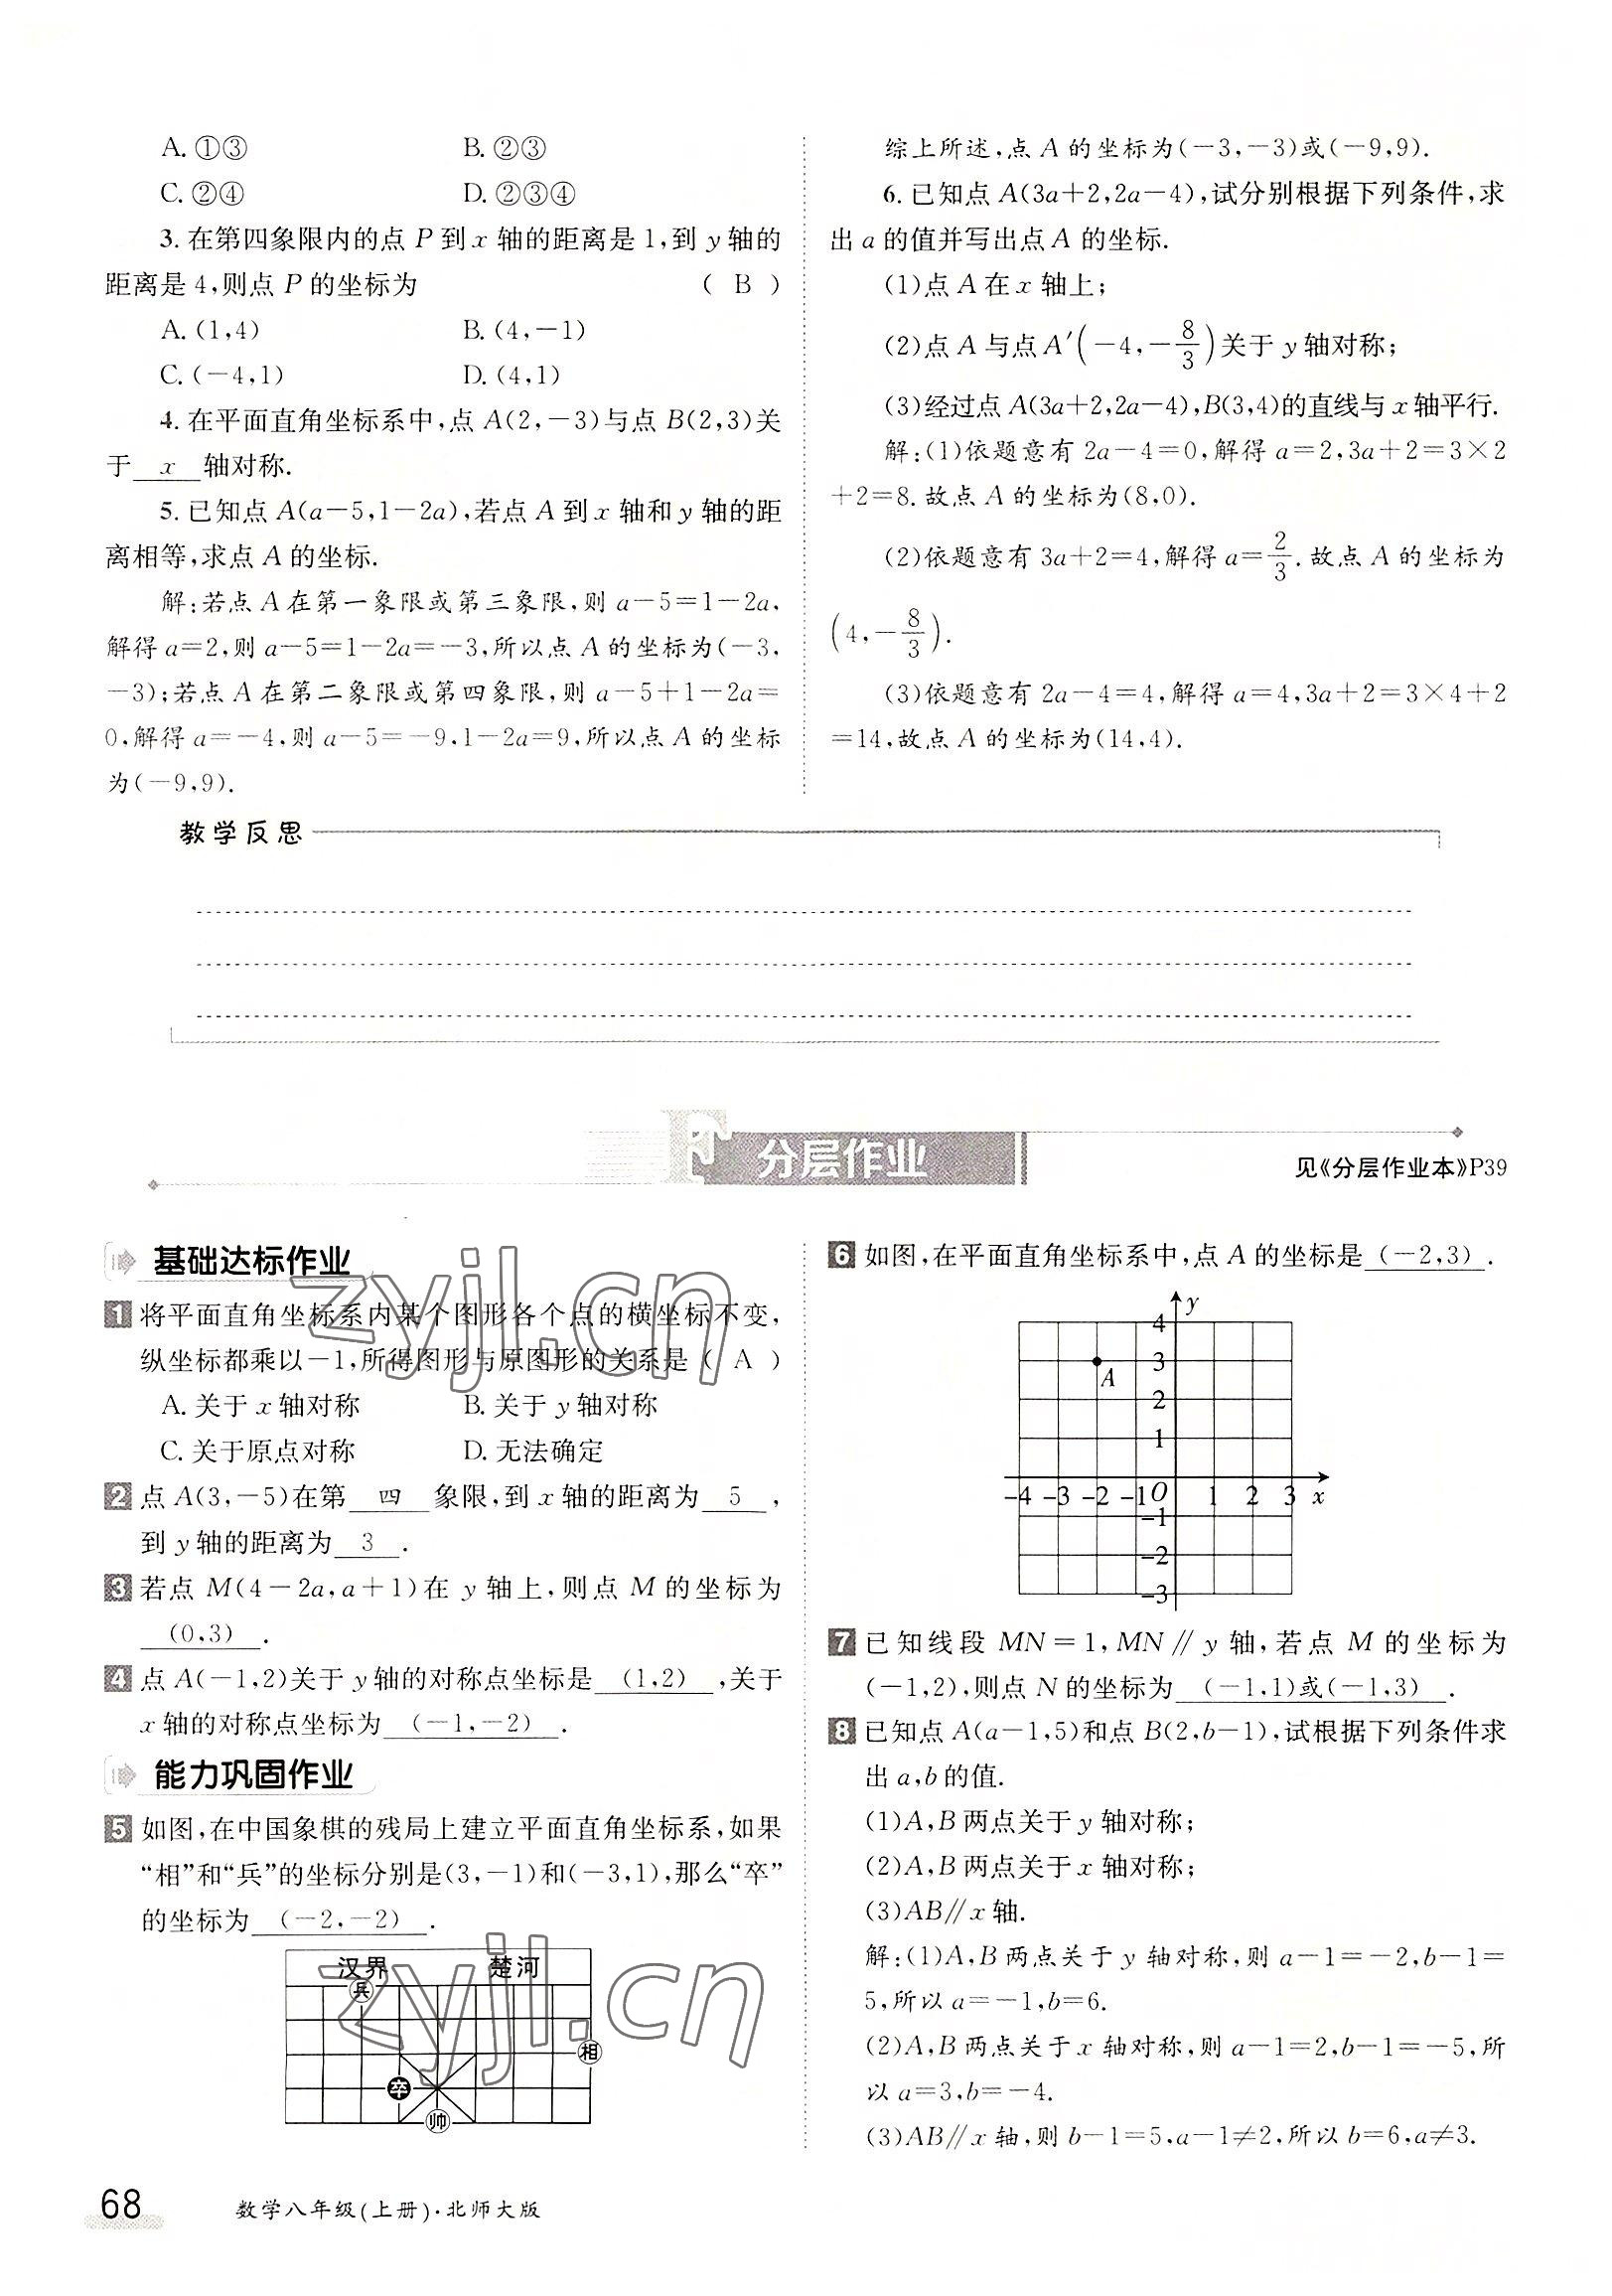 A. ①③ B. ②③
C. ②④ D. ②③④
3. 在第四象限内的点 P 到 x 轴的距离是 1,到 y 轴的
距离是 4,则点 P 的坐标为 ( B )
A. (1,4) B. (4,-1)
C. (-4,1) D. (4,1)
4. 在平面直角坐标系中,点 A(2,-3)与点 B(2,3)关
于 x 轴对称.
5. 已知点 A(a-5,1-2a),若点 A 到 x 轴和 y 轴的距
离相等,求点 A 的坐标.
解:若点 A 在第一象限或第三象限,则 a-5=1-2a,
解得 a=2,则 a-5=1-2a=-3,所以点 A 的坐标为(-3,
-3);若点 A 在第二象限或第四象限,则 a-5+1-2a=
0,解得 a=-4,则 a-5=-9,1-2a=9,所以点 A 的坐标
为(-9,9).
综上所述,点 A 的坐标为(-3,-3)或(-9,9).
6. 已知点 A(3a+2,2a-4),试分别根据下列条件,求
出 a 的值并写出点 A 的坐标.
(1)点 A 在 x 轴上;
(2)点 A 与点 A′(-4,-8/3)关于 y 轴对称;
(3)经过点 A(3a+2,2a-4),B(3,4)的直线与 x 轴平行.
解:(1)依题意有 2a-4=0,解得 a=2,3a+2=3×2
+2=8.故点 A 的坐标为(8,0).
(2)依题意有 3a+2=4,解得 a=2/3.故点 A 的坐标为
(4,-8/3).
(3)依题意有 2a-4=4,解得 a=4,3a+2=3×4+2
=14,故点 A 的坐标为(14,4).
教学反思
分层作业
见《分层作业本》P39
基础达标作业
1 将平面直角坐标系内某个图形各个点的横坐标不变,
纵坐标都乘以-1,所得图形与原图形的关系是( A )
A. 关于 x 轴对称 B. 关于 y 轴对称
C. 关于原点对称 D. 无法确定
2 点 A(3,-5)在第 四 象限,到 x 轴的距离为 5 ,
到 y 轴的距离为 3 .
3 若点 M(4-2a,a+1)在 y 轴上,则点 M 的坐标为
(0,3) .
4 点 A(-1,2)关于 y 轴的对称点坐标是 (1,2) ,关于
x 轴的对称点坐标为 (-1,-2) .
能力巩固作业
5 如图,在中国象棋的残局上建立平面直角坐标系,如果
“相”和“兵”的坐标分别是(3,-1)和(-3,1),那么“卒”
的坐标为 (-2,-2) .
汉界 楚河
兵
相
卒
帅
6 如图,在平面直角坐标系中,点 A 的坐标是 (-2,3) .
y
4
3
A
2
1
-4 -3 -2 -1 O 1 2 3 x
-1
-2
-3
7 已知线段 MN=1,MN∥y 轴,若点 M 的坐标为
(-1,2),则点 N 的坐标为 (-1,1)或(-1,3) .
8 已知点 A(a-1,5)和点 B(2,b-1),试根据下列条件求
出 a,b 的值.
(1)A,B 两点关于 y 轴对称;
(2)A,B 两点关于 x 轴对称;
(3)AB∥x 轴.
解:(1)A,B 两点关于 y 轴对称,则 a-1=-2,b-1=
5,所以 a=-1,b=6.
(2)A,B 两点关于 x 轴对称,则 a-1=2,b-1=-5,所
以 a=3,b=-4.
(3)AB∥x 轴,则 b-1=5,a-1≠2,所以 b=6,a≠3.
zyjl.cn
zyjl.cn
68 数学八年级(上册)·北师大版